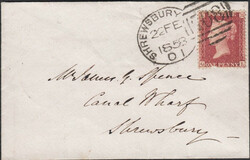 SHREWSBURY
22 FE
1858
D1
ONE PENNY
Mr James J Spence
Canal Wharf
Shrewsbury